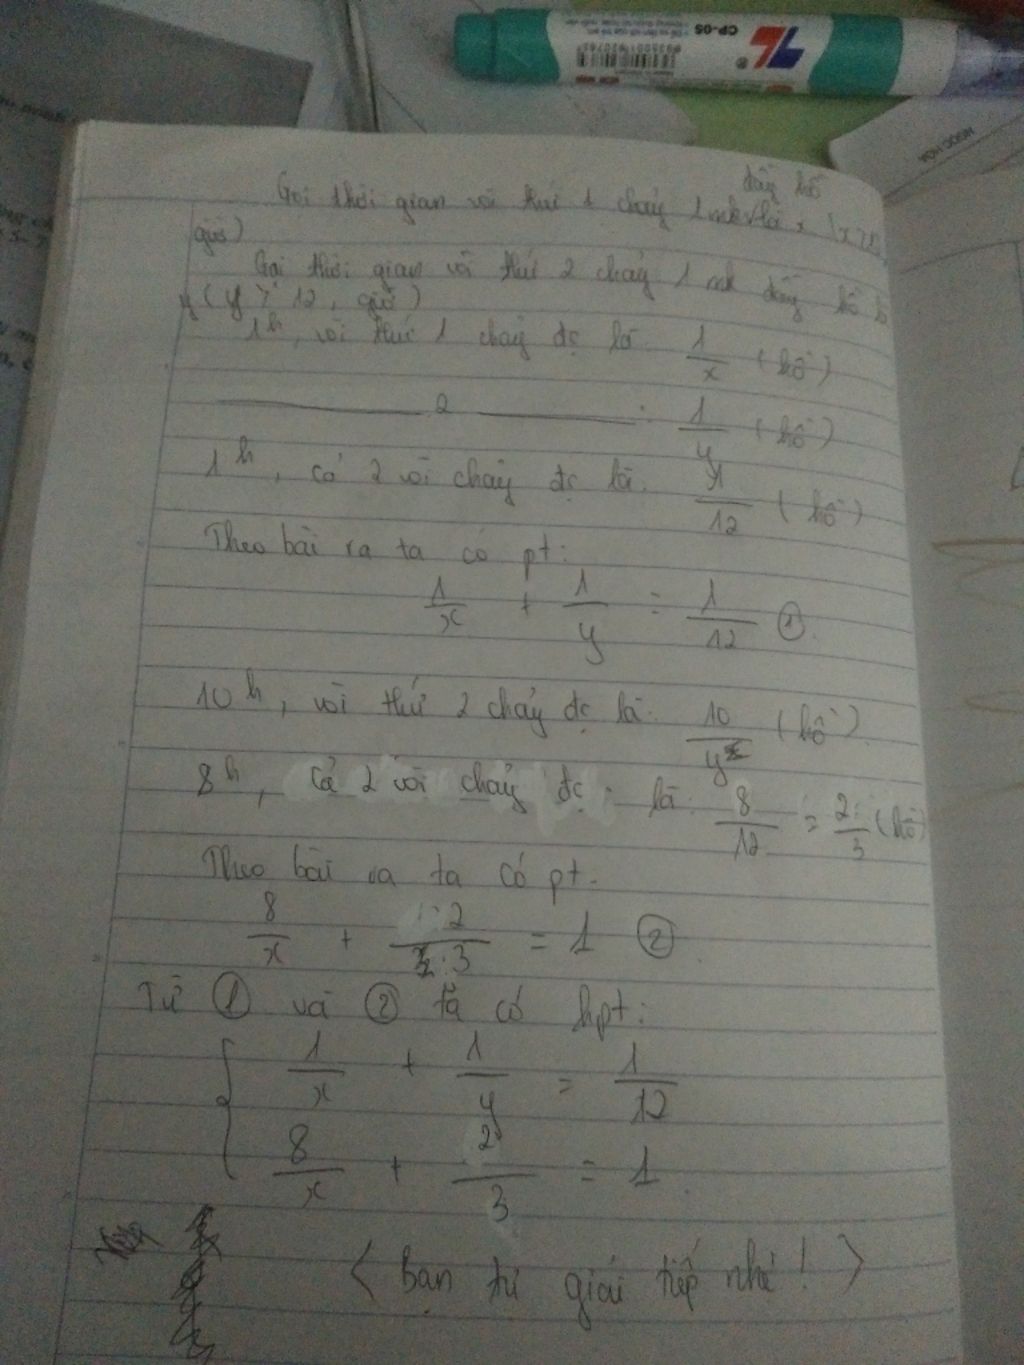 CP-05
TL
®
NGỌC HOA
đầy hồ
Gọi thời gian vòi thứ 1 chảy 1 mk là x (x > 12,
giờ)
Gọi thời gian vòi thứ 2 chảy 1 mk đầy hồ là
y (y > 12, giờ)
1h, vòi thứ 1 chảy đc là: 1/x (hồ)
2 : 1/y (hồ)
1h, cả 2 vòi chảy đc là: 1/12 (hồ)
Theo bài ra ta có pt:
1/x + 1/y = 1/12 ①
10h, vòi thứ 2 chảy đc là: 10/y (hồ)
8h, cả 2 vòi chảy đc là: 8/12 = 2/3 (hồ)
Theo bài ra ta có pt:
8/x + 2/3 = 1 ②
Từ ① và ② ta có hpt:
{ 1/x + 1/y = 1/12
8/x + 2/3 = 1
< Bạn tự giải tiếp nhé! >